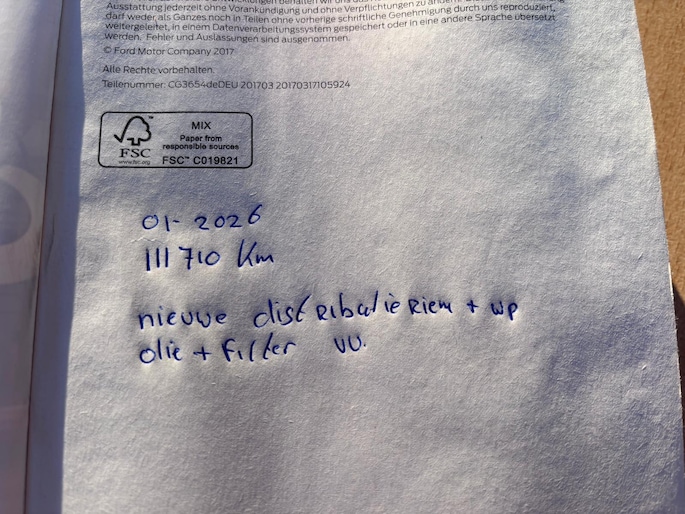 Ausstattung jederzeit ohne Vorankündigung und ohne Verpflichtungen zu ändern.
darf weder als Ganzes noch in Teilen ohne vorherige schriftliche Genehmigung durch uns reproduziert,
weitergeleitet, in einem Datenverarbeitungssystem gespeichert oder in eine andere Sprache übersetzt
werden. Fehler und Auslassungen sind ausgenommen.
© Ford Motor Company 2017
Alle Rechte vorbehalten.
Teilenummer: CG3654deDEU 201703 20170317105924
FSC
www.fsc.org
MIX
Paper from
responsible sources
FSC™ C019821
01-2026
111710 Km
nieuwe distributieriem + wp
olie + filter vv.